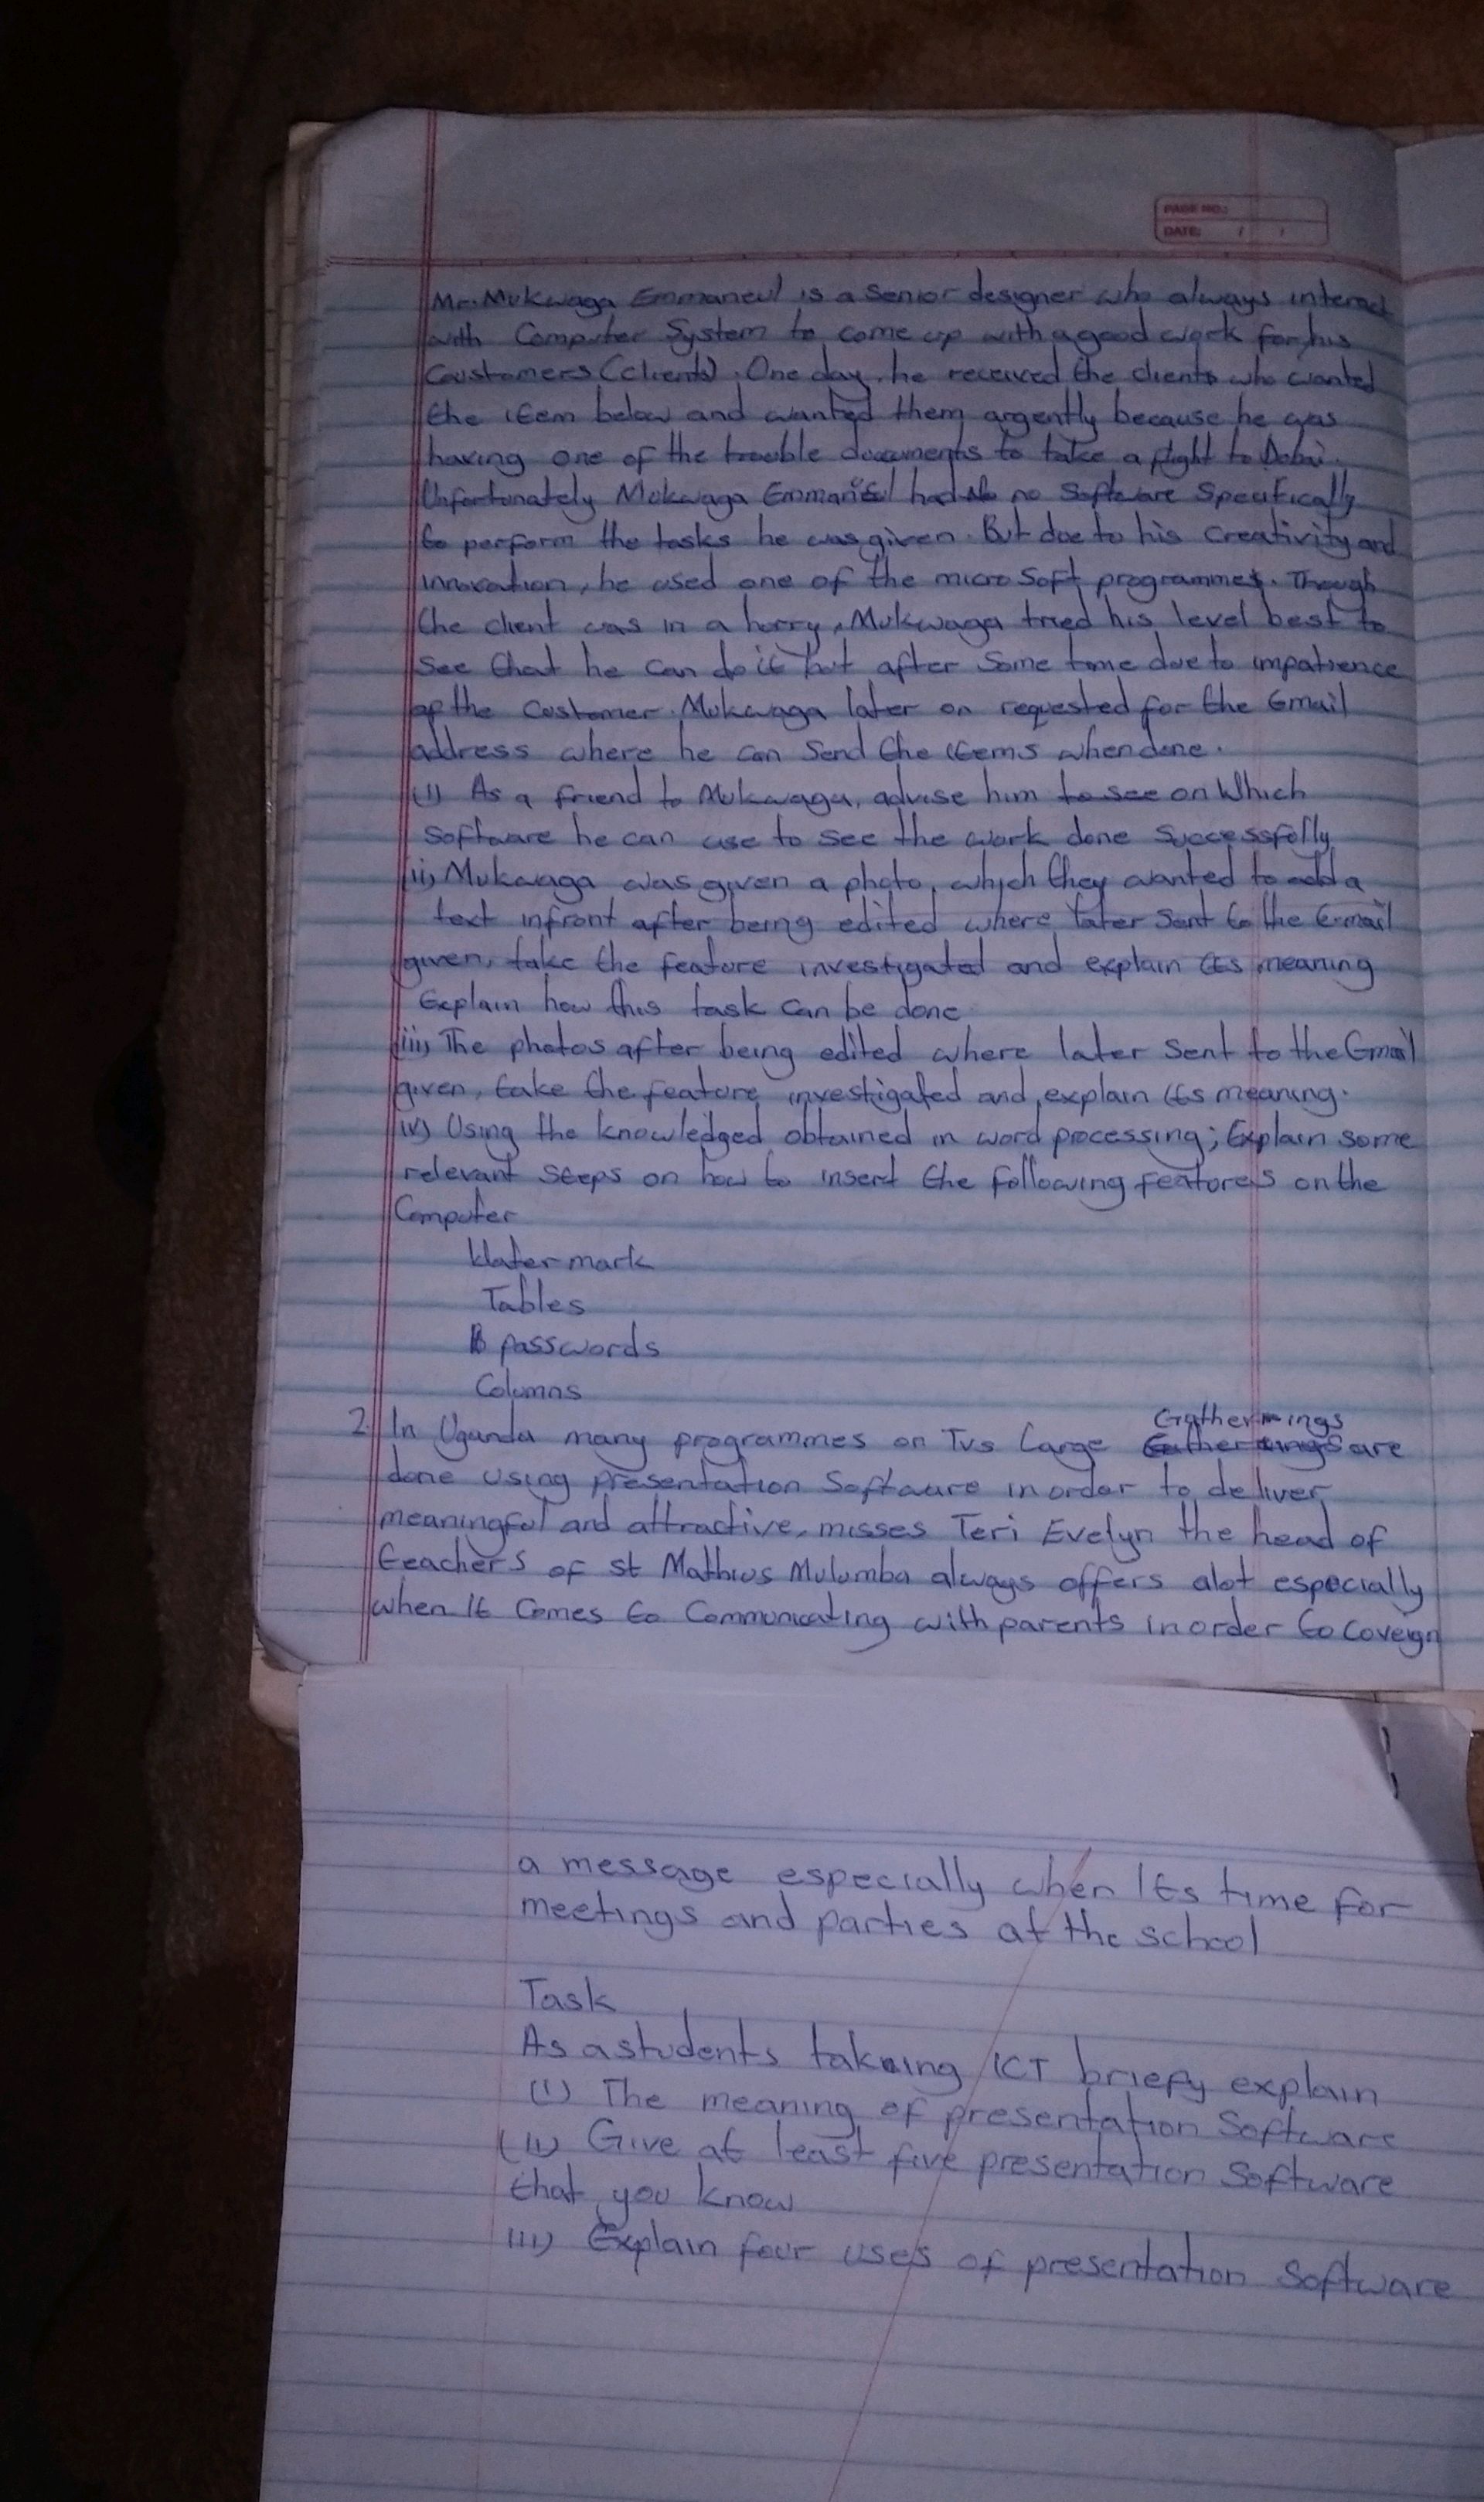 PAGE NO.:
DATE: / /
Mr. Mukwaga Emmaneul is a Senior designer who always interact
with Computer System to come up with a good work for his
Coustomers (clients). One day, he received the clients who wanted
the item below and wanted them argently because he was
having one of the trouble documents to take a flight to Dubai.
Unfortunately Mukwaga Emmanuel had no Software Specifically
to perform the tasks he was given. But due to his Creativity and
innovation, he used one of the micro soft programmes. Though
the client was in a hurry, Mukwaga tried his level best to
see that he can do it but after some time due to impatience
of the Customer. Mukwaga later on requested for the Gmail
address where he can Send the items when done.
(i) As a friend to Mukwaga, advise him to see on Which
Software he can use to see the work done Successfully
(ii) Mukwaga was given a photo, which they wanted to add a
text infront after being edited where later Sent to the Gmail
given, take the feature investigated and explain its meaning
Explain how this task can be done
(iii) The photos after being edited where later Sent to the Gmail
given, take the feature investigated and explain its meaning.
iv) Using the knowledged obtained in word processing; Explain some
relevant steps on how to insert the following features on the
Computer
Water mark
Tables
passwords
Columns
Gatherings
2. In Uganda many programmes on Tvs large are
done using presentation Software in order to deliver
meaningful and attractive, misses Teri Evelyn the head of
teachers of st Mathius Mulumba always offers alot especially
when it Comes to Communicating with parents in order to coveign
a message especially when its time for
meetings and parties at the school
Task
As a students taking ICT briefy explain
(i) The meaning of presentation Software
(ii) Give at least five presentation Software
that you know
iii) Explain four uses of presentation Software